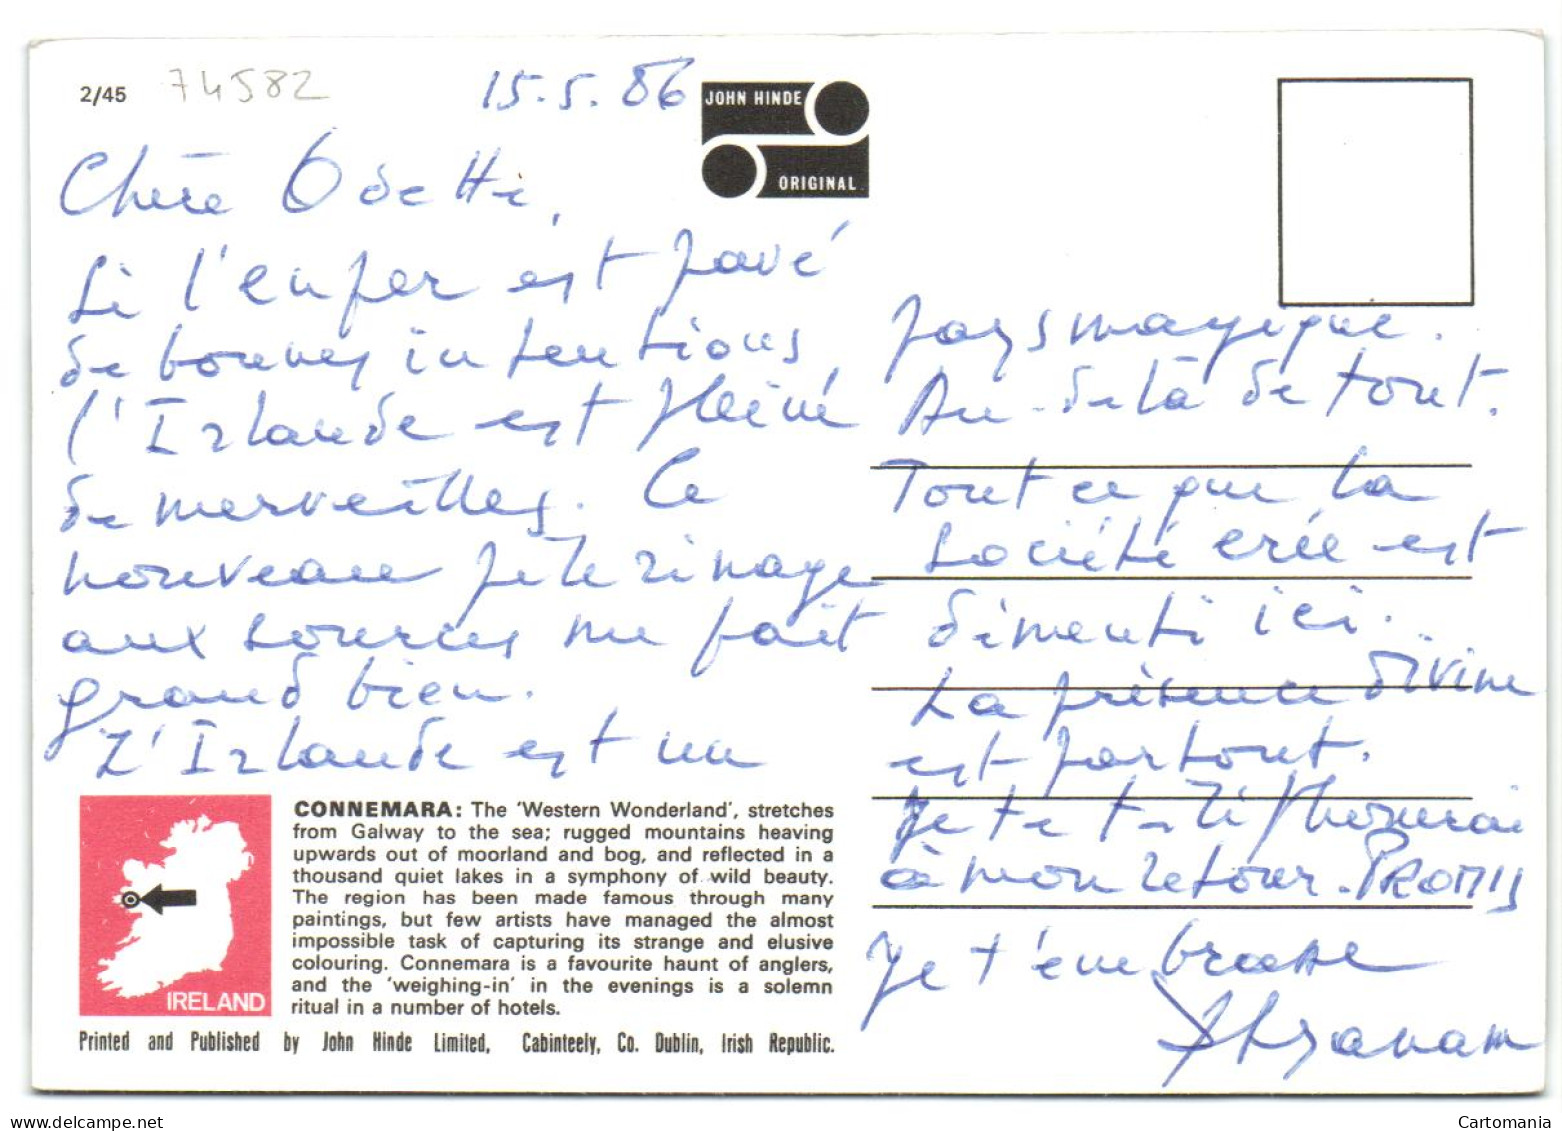 2/45
74582
15.5.86
JOHN HINDE
ORIGINAL
Chère Odette,
Si l'enfer est pavé
de bonnes intentions,
l'Irlande est pleine
de merveilles. Ce
nouveau pélerinage
aux sources me fait
grand bien.
L'Irlande est un
pays magique.
Au-delà de tout.
Tout ce que la
société crée est
démenti ici.
La présence divine
est partout.
Je te téléphonerai
à mon retour. PROMIS
Je t'embrasse
CONNEMARA: The 'Western Wonderland', stretches
from Galway to the sea; rugged mountains heaving
upwards out of moorland and bog, and reflected in a
thousand quiet lakes in a symphony of wild beauty.
The region has been made famous through many
paintings, but few artists have managed the almost
impossible task of capturing its strange and elusive
colouring. Connemara is a favourite haunt of anglers,
and the 'weighing-in' in the evenings is a solemn
ritual in a number of hotels.
IRELAND
Printed and Published by John Hinde Limited, Cabinteely, Co. Dublin, Irish Republic.
Cartomania